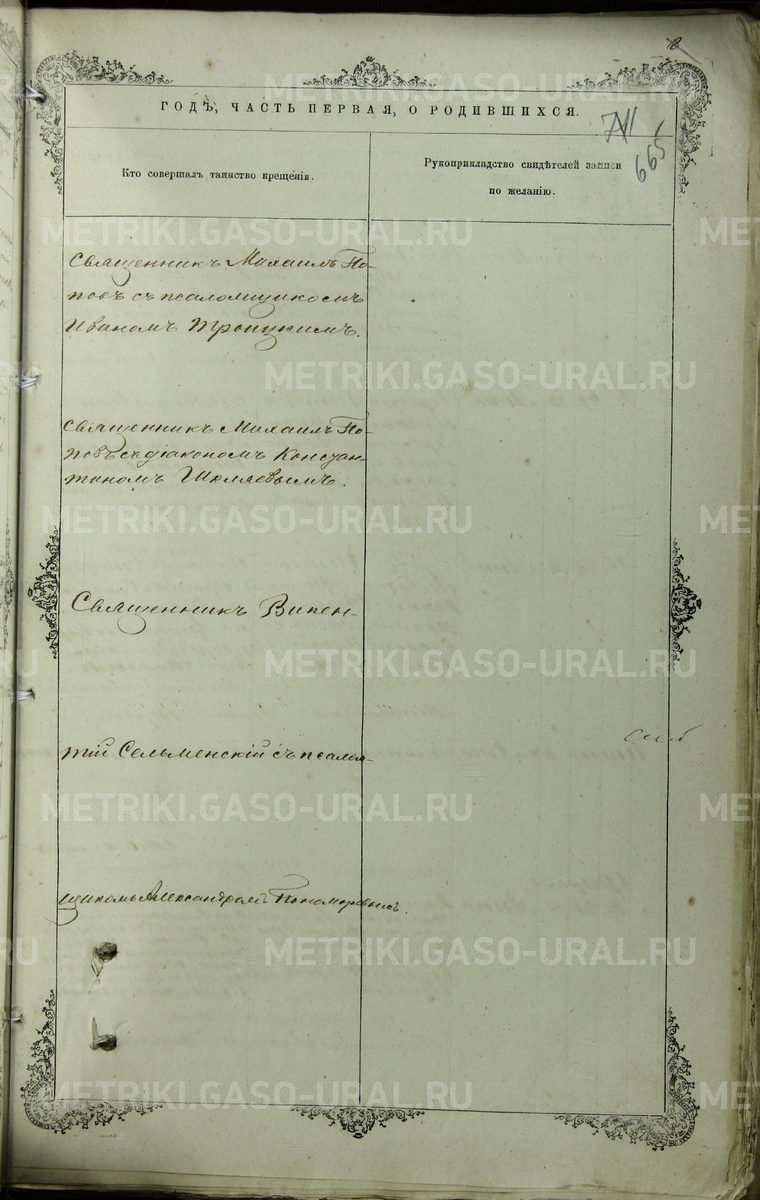 ГОДЪ, ЧАСТЬ ПЕРВАЯ, О РОДИВШИХСЯ.
665
Кто совершалъ таинство крещенія.
Рукоприкладство свидѣтелей записи
по желанію.
Священникъ Михаилъ По-
повъ съ псаломщикомъ
Иваномъ Троицкимъ.
Священникъ Михаилъ По-
повъ съ діакономъ Констан-
тиномъ Шкляевымъ.
Священникъ Викен-
тій Сельменскій съ псалом-
щикомъ Александромъ Пономаревымъ.
METRIKI.GASO-URAL.RU